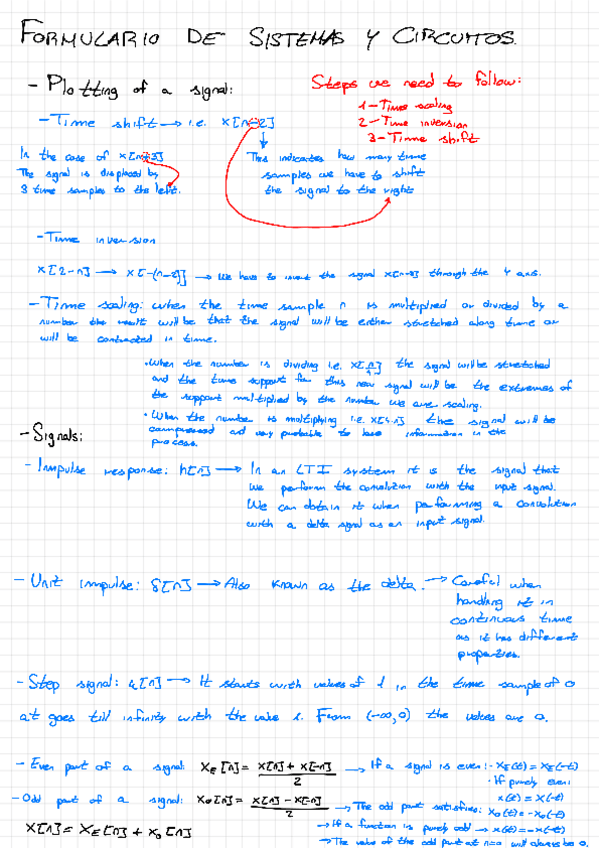 FORMULARIO DE SISTEMAS Y CIRCUITOS.
- Plotting of a signal:
Steps we need to follow:
1-Time scaling
2-Time inversion
3-Time shift
- Time shift → i.e. x[n-2]
In the case of x[n+3]
The signal is displaced by
3 time samples to the left.
This indicates how many time
samples we have to shift
the signal to the right
- Time inversion
x[2-n] → x[-(n-2)] → We have to invert the signal through the Y axis.
- Time scaling: when the time sample n is multiplied or divided by a
number the result will be that the signal will be either stretched along time or
will be contracted in time.
• When the number is dividing i.e. the signal will be stretched
and the time support for this new signal will be the extremes of
the support multiplied by the number we are scaling.
• When the number is multiplying i.e. the signal will be
compressed and very probable to lose information in the
process.
- Signals:
- Impulse response: h[n] → In an LTI system it is the signal that
we perform the convolution with the input signal.
We can obtain it when performing a convolution
with a delta signal as an input signal.
- Unit impulse: δ[n] → Also known as the delta. → Careful when
handling it in
continuous time
as it has different
properties.
- Step signal: u[n] → It starts with values of 1 in the time sample of 0
at goes till infinity with the value 1. From (-∞,0) the values are 0.
- Even part of a signal: xE[n] = x[n] + x[-n] / 2 → If a signal is even: · xE(t) = xE(-t)
· If purely even:
x(t) = x(-t)
- Odd part of a signal: xo[n] = x[n] - x[-n] / 2 → The odd part satisfies: xo(t) = -xo(-t)
→ If a function is purely odd → x(t) = -x(-t)
x[n] = xE[n] + xo[n]
→ The value of the odd part at n=0 will always be 0.